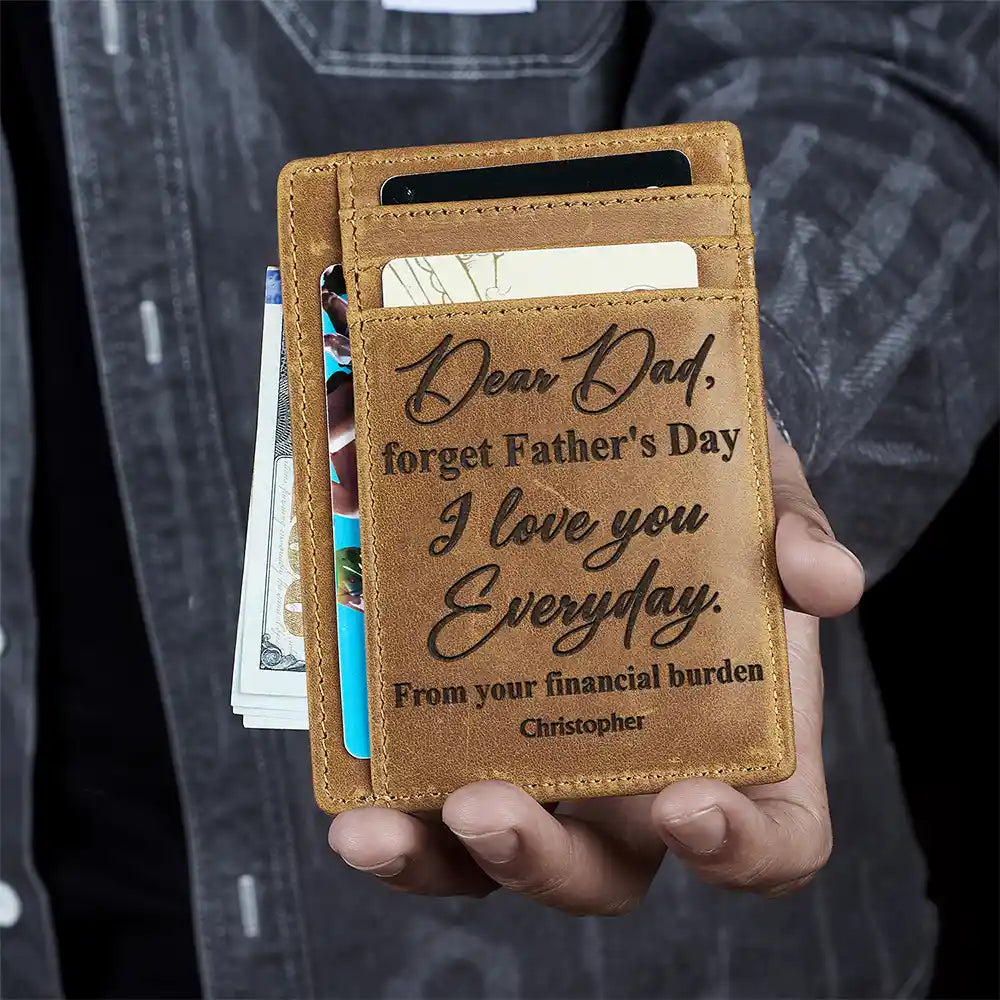 Dear Dad,
forget Father's Day
I love you
Everyday.
From your financial burden
Christopher